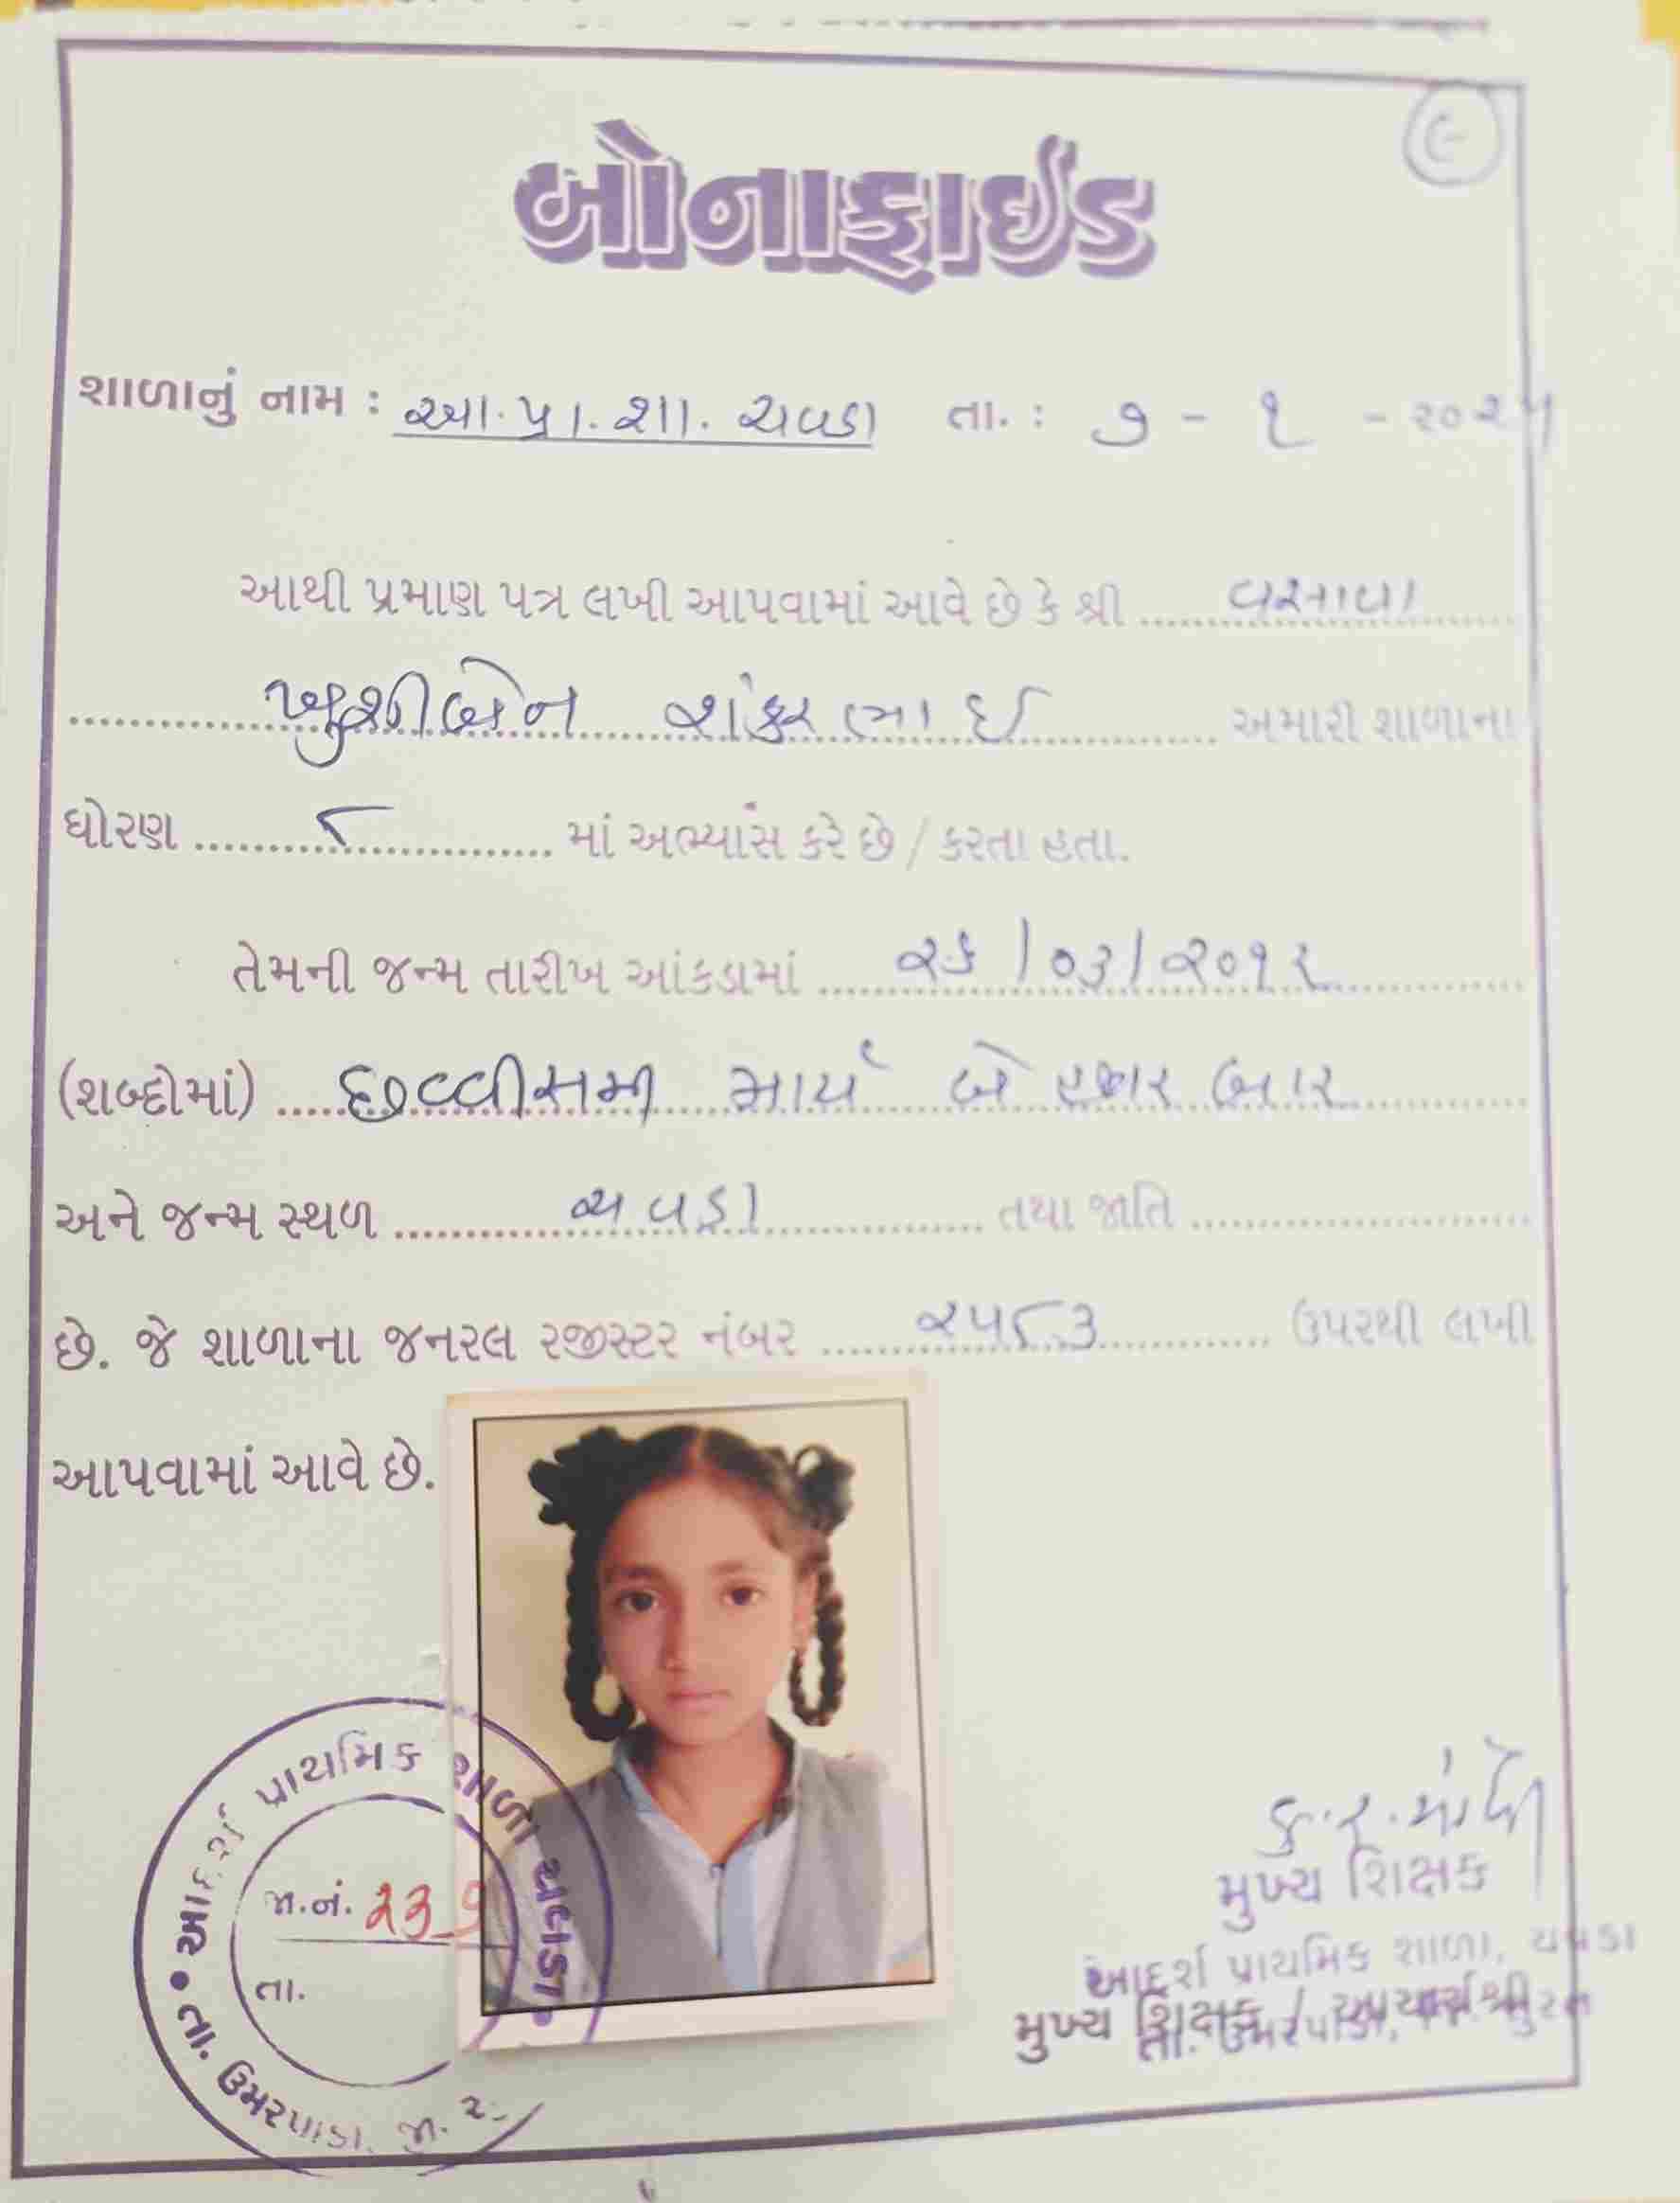 બોનાફાઈડ
શાળાનું નામ : આ.પ્રા.શા. ચવડા તા. : ૭ - ૧ - ૨૦૨૫
આથી પ્રમાણ પત્ર લખી આપવામાં આવે છે કે શ્રી વસાવા
ખુશીબેન શંકરભાઈ અમારી શાળાના
ધોરણ ૮ માં અભ્યાસ કરે છે / કરતા હતા.
તેમની જન્મ તારીખ આંકડામાં ૨૬/૦૩/૨૦૧૨
(શબ્દોમાં) છવ્વીસમી માર્ચ બે હજાર બાર
અને જન્મ સ્થળ ચવડા તથા જાતિ
છે. જે શાળાના જનરલ રજીસ્ટર નંબર ૨૫૮૩ ઉપરથી લખી
આપવામાં આવે છે.
આદર્શ પ્રાથમિક શાળા ચવડા
જા.નં. ૨૩
તા.
તા. ઉમરપાડા, જી.
મુખ્ય શિક્ષક
આદર્શ પ્રાથમિક શાળા, ચવડા
મુખ્ય શિક્ષક / આચાર્યશ્રી
તા. ઉમરપાડા, સુરત